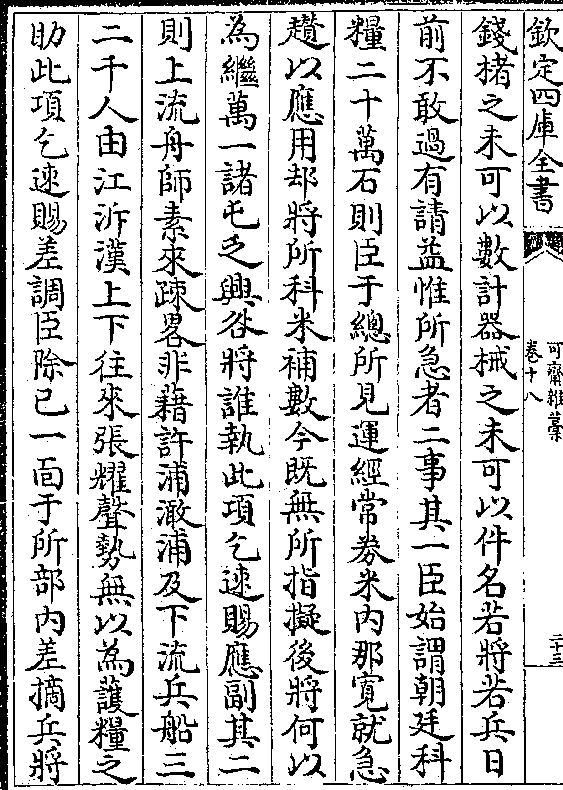 欽定四庫全書
可齋雜藁
卷十八
二十三
錢楮之未可以數計器械之未可以件名若將若兵日
前不敢過有請益惟所急者二事其一臣始謂朝廷科
糧二十萬石則臣于總所見運經常劵米内那寛就急
趲以應用却將所科米補數今既無所指擬後將何以
為繼萬一諸屯乏興咎將誰執此項乞速賜應副其二
則上流舟師素來疎畧非藉許浦澉浦及下流兵船三
二千人由江泝漢上下往來張耀聲勢無以為護糧之
助此項乞速賜差調臣除已一面于所部内差摘兵將